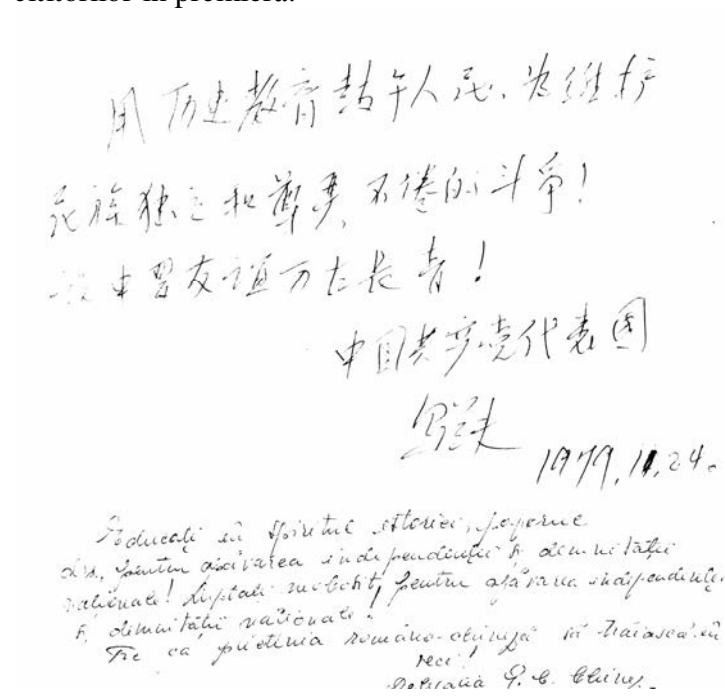 用历史教育青年人民,为维护
民族独立和尊严,不倦的斗争!
中罗友谊万古长青!
中国共产党代表团
1979.11.24.
Educați în spiritul istoriei, poporul
dvs. pentru apărarea independenței și demnității
naționale! Luptați neobosit pentru apărarea independenței
și demnității naționale!
Fie ca prietenia româno-chineză să trăiască în
veci!
Delegația P. C. Chinez.